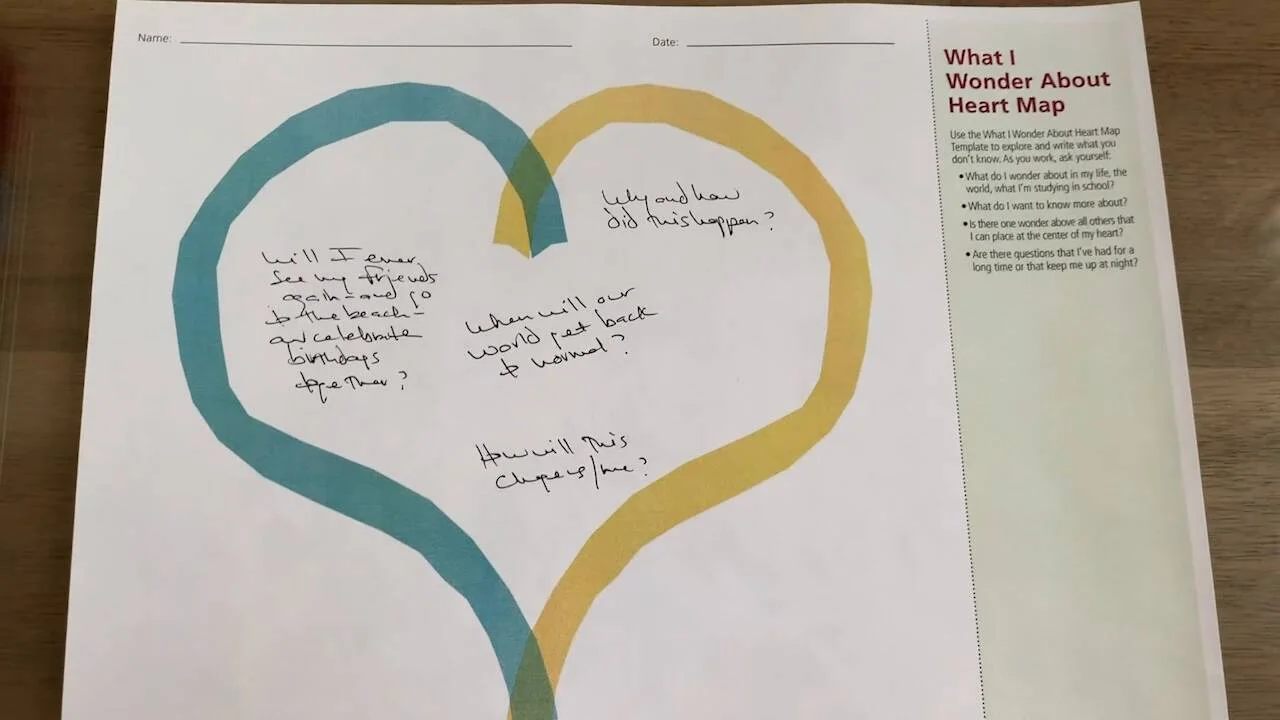 Name:
Date:
What I
Wonder About
Heart Map
Use the What I Wonder About Heart Map
Template to explore and write what you
don't know. As you work, ask yourself:
• What do I wonder about in my life, the
world, what I'm studying in school?
• What do I want to know more about?
• Is there one wonder above all others that
I can place at the center of my heart?
• Are there questions that I've had for a
long time or that keep me up at night?
Why and how
did this happen?
Will I ever
see my friends
again - and go
to the beach -
and celebrate
birthdays
together?
When will our
world get back
to normal?
How will this
change us/me?